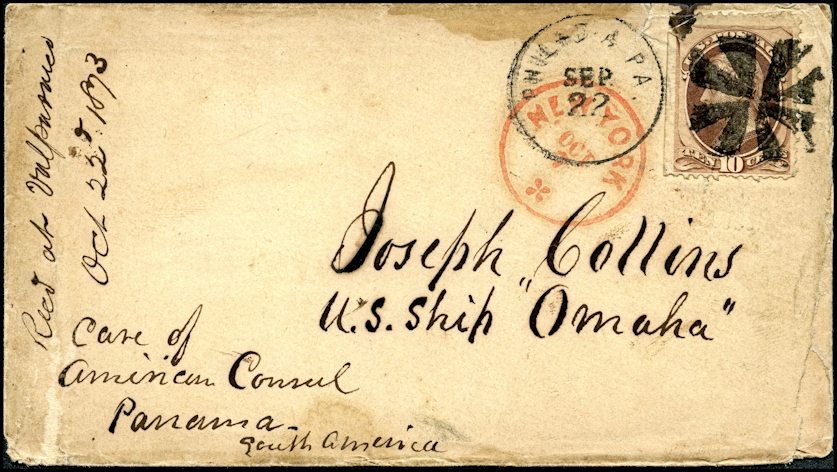 Recd at Valparaiso
Oct 22d. 1873
PHILAD'A PA.
SEP.
22
NEW YORK
OCT
10
CENTS
Joseph Collins
U.S. Ship "Omaha"
Care of
American Consul
Panama
South America